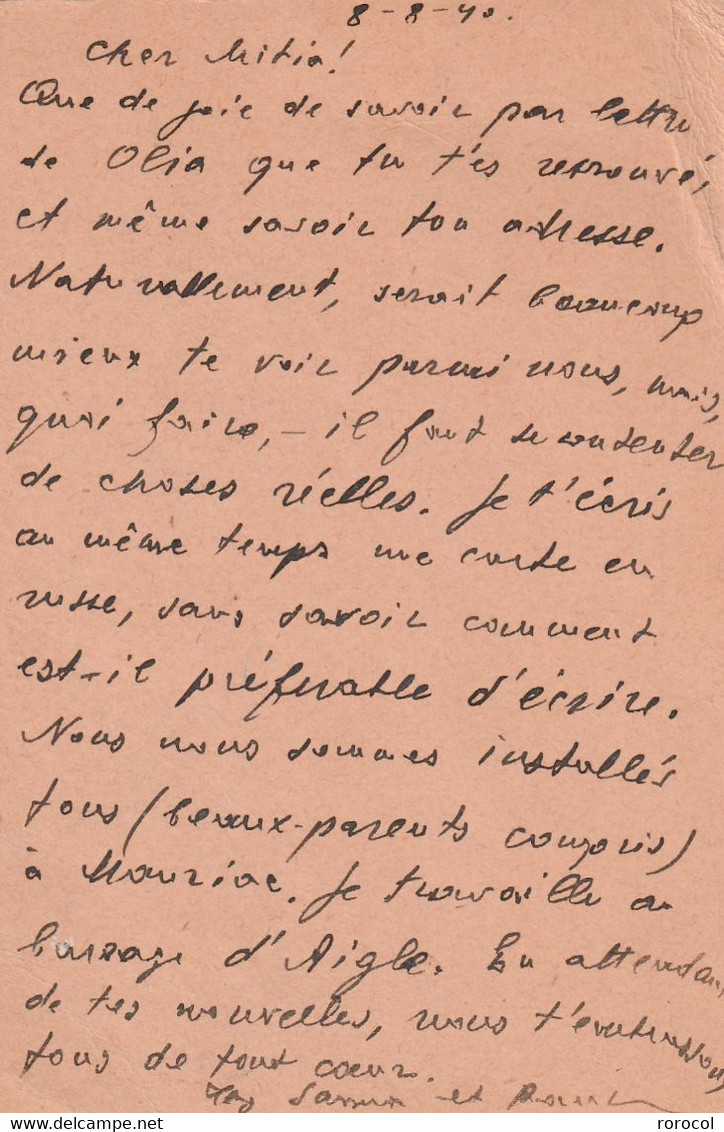 8-8-40.
Cher Mitia!
Que de joie de savoir par lettre
de Olia que tu t'es retrouvé,
et même savoir ton adresse.
Naturallement, serait beaucoup
mieux te voir parmi nous, mais,
quoi faire, – il faut se contenter
de choses réelles. Je t'écris
au même temps une carte en
russe, sans savoir comment
est-il préferable d'écrire.
Nous nous sommes installés
tous (beaux-parents compris)
à Mauriac. Je travaille au
barrage d'Aigle. En attendant
de tes nouvelles, nous t'embrassons
tous de tout cœur.
et
rorocol